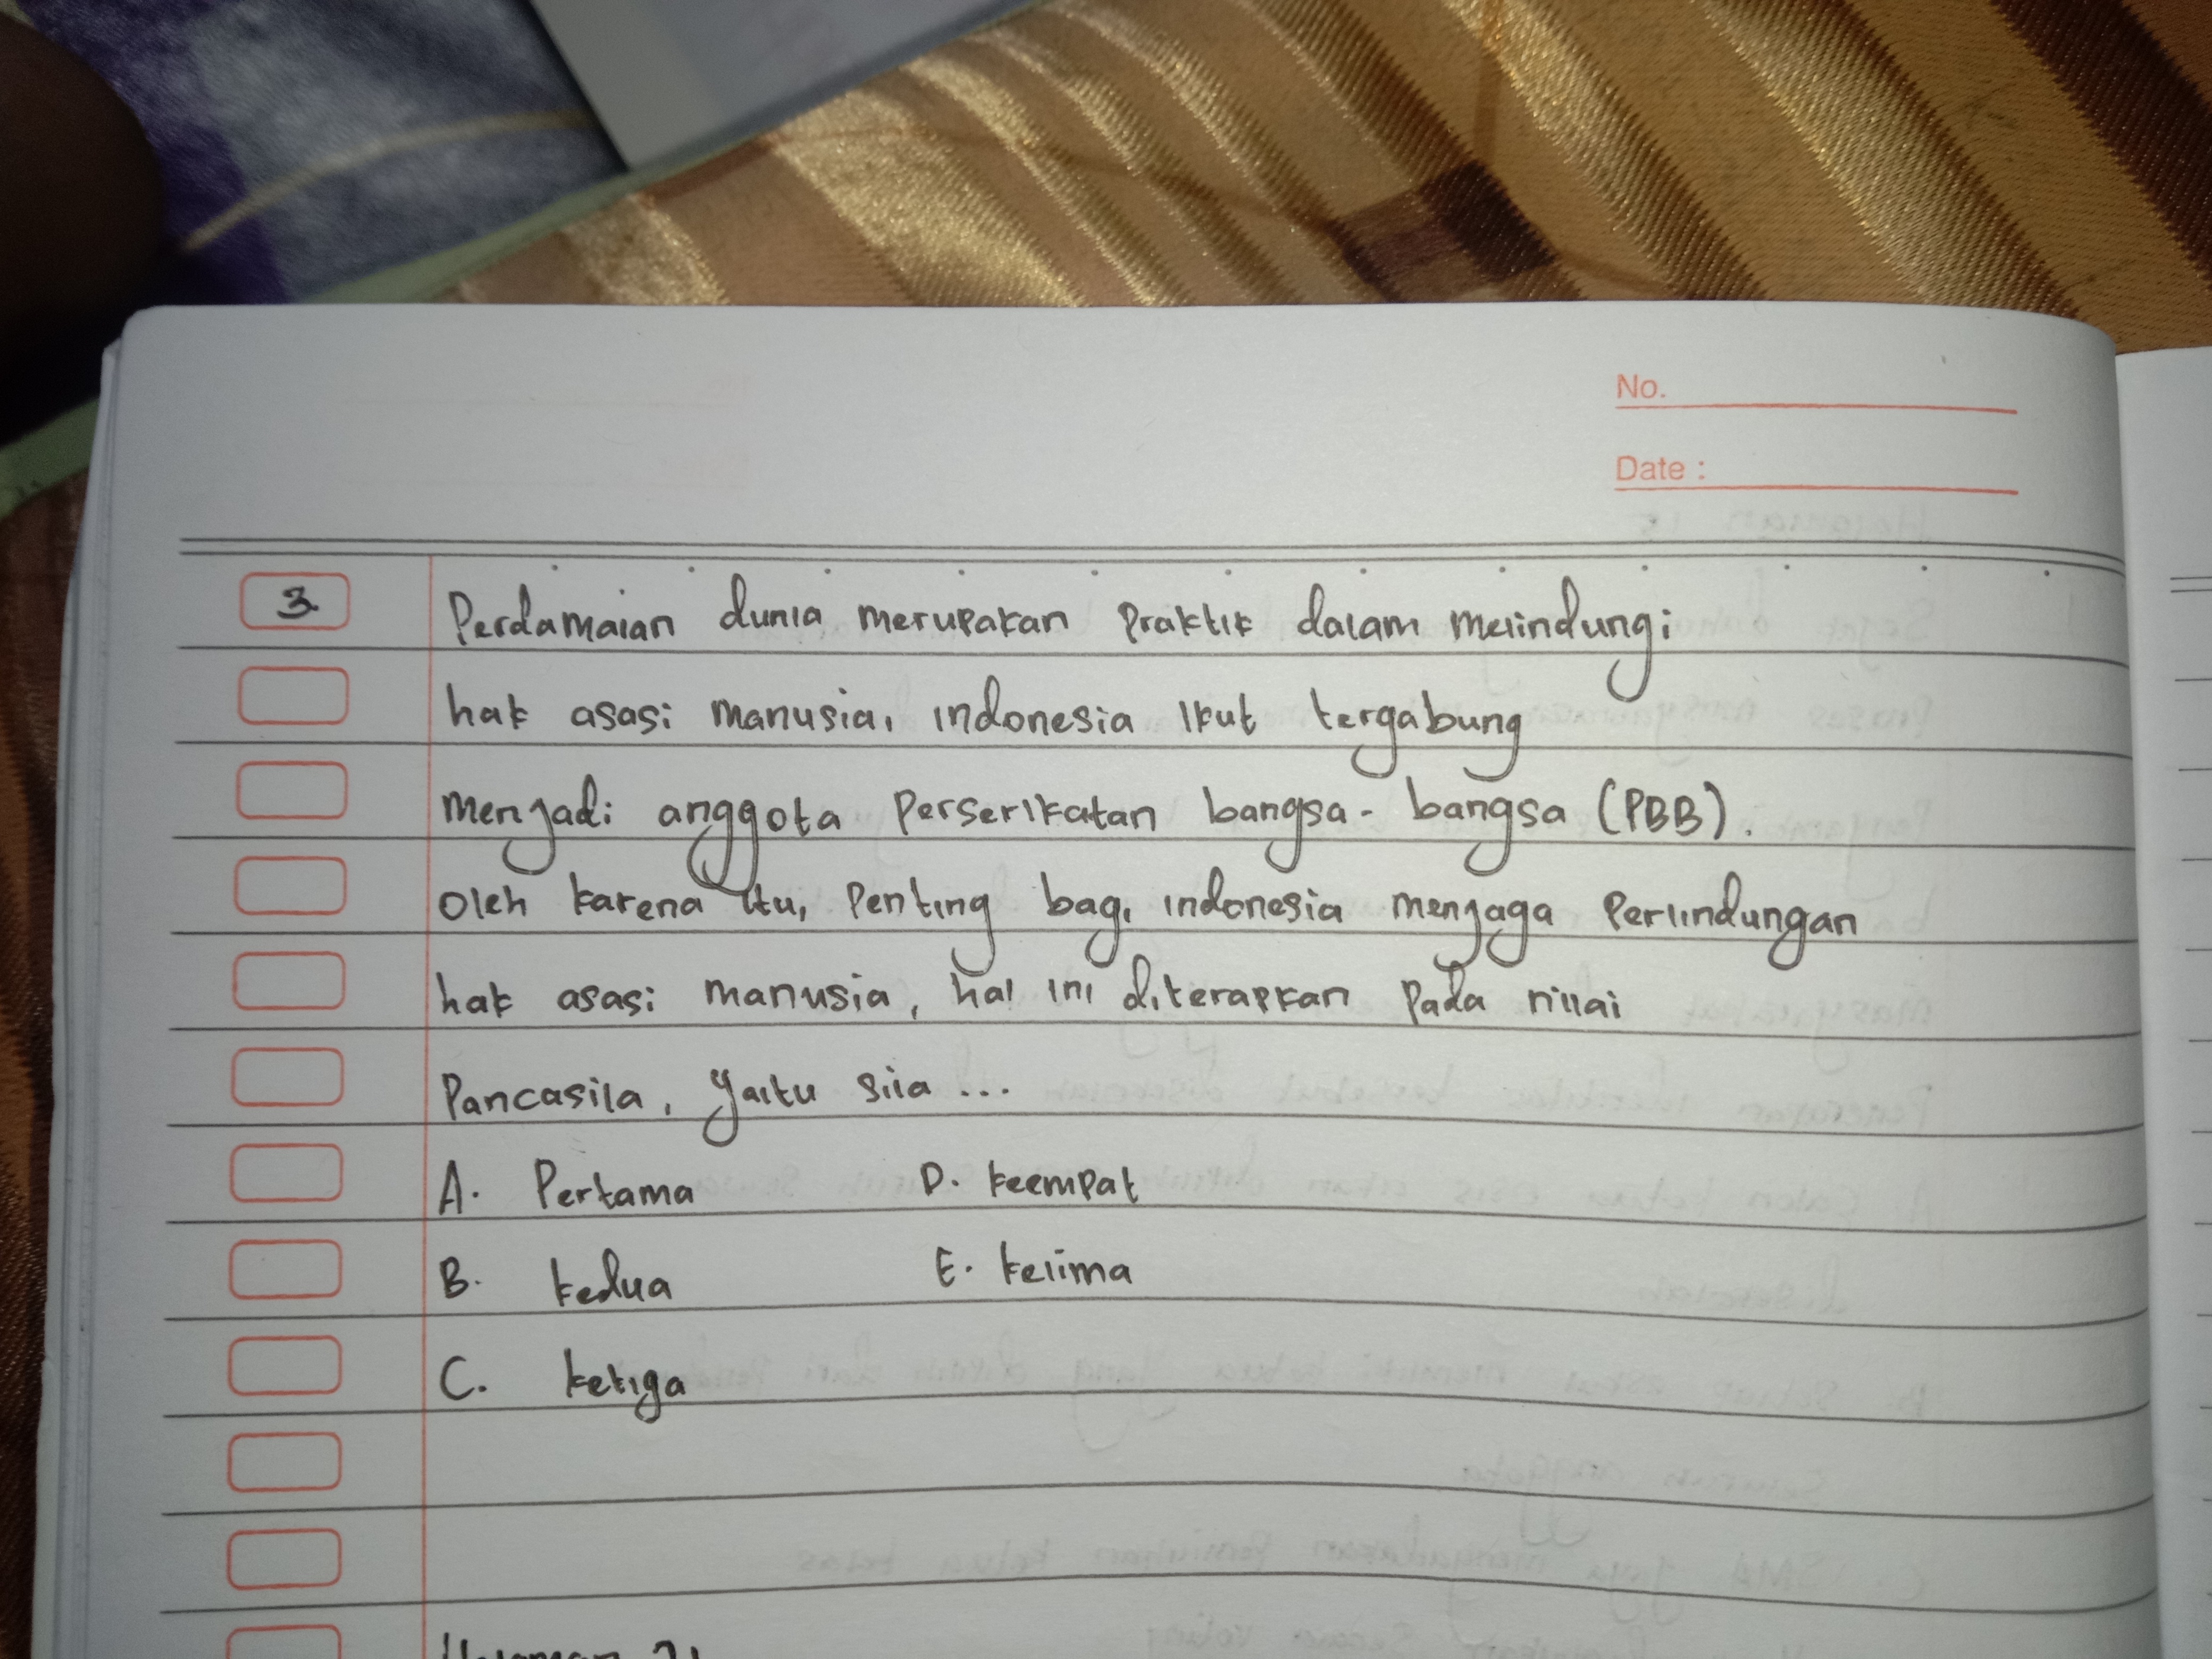 No.
Date :
3. Perdamaian dunia merupakan praktik dalam melindungi
hak asasi manusia, indonesia ikut tergabung
menjadi anggota Perserikatan bangsa-bangsa (PBB).
oleh karena itu, Penting bagi indonesia menjaga Perlindungan
hak asasi manusia, hal ini diterapkan pada nilai
Pancasila, yaitu sila ...
A. Pertama D. keempat
B. kedua E. kelima
C. ketiga